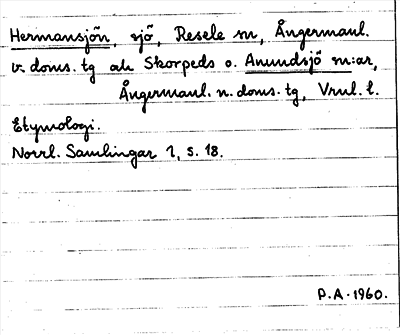 Hermansjön, sjö, Resele sn, Ångermanl.
v. doms. tg och Skorpeds o. Anundsjö sn:ar,
Ångermanl. n. doms. tg, Vnrl. l.
Etymologi.
Norrl. Samlingar 1, s. 18.
P.A. 1960.